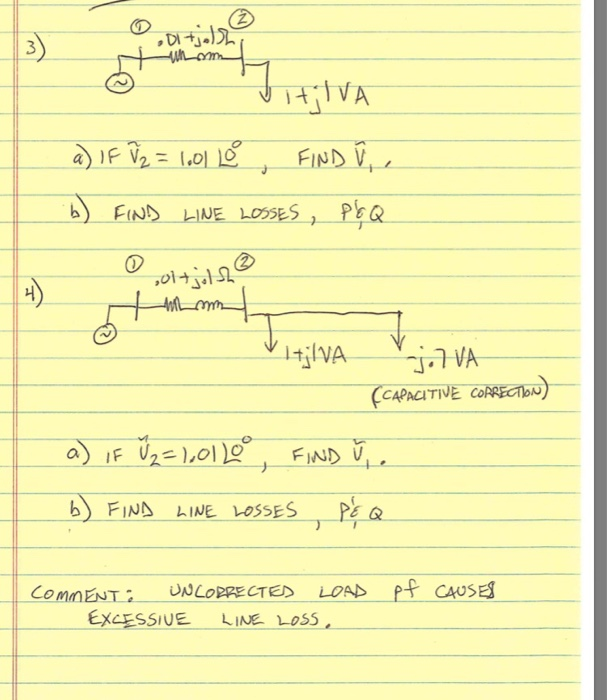 3)
① ②
.01+j.1Ω
1+j1VA
a) IF Ṽ₂ = 1.01∠0°, FIND Ṽ₁.
b) FIND LINE LOSSES, P & Q
4)
① ②
.01+j.1Ω
1+j1VA
-j.7VA
(CAPACITIVE CORRECTION)
a) IF Ṽ₂=1.01∠0°, FIND Ṽ₁.
b) FIND LINE LOSSES, P & Q
COMMENT: UNCORRECTED LOAD pf CAUSES
EXCESSIVE LINE LOSS.